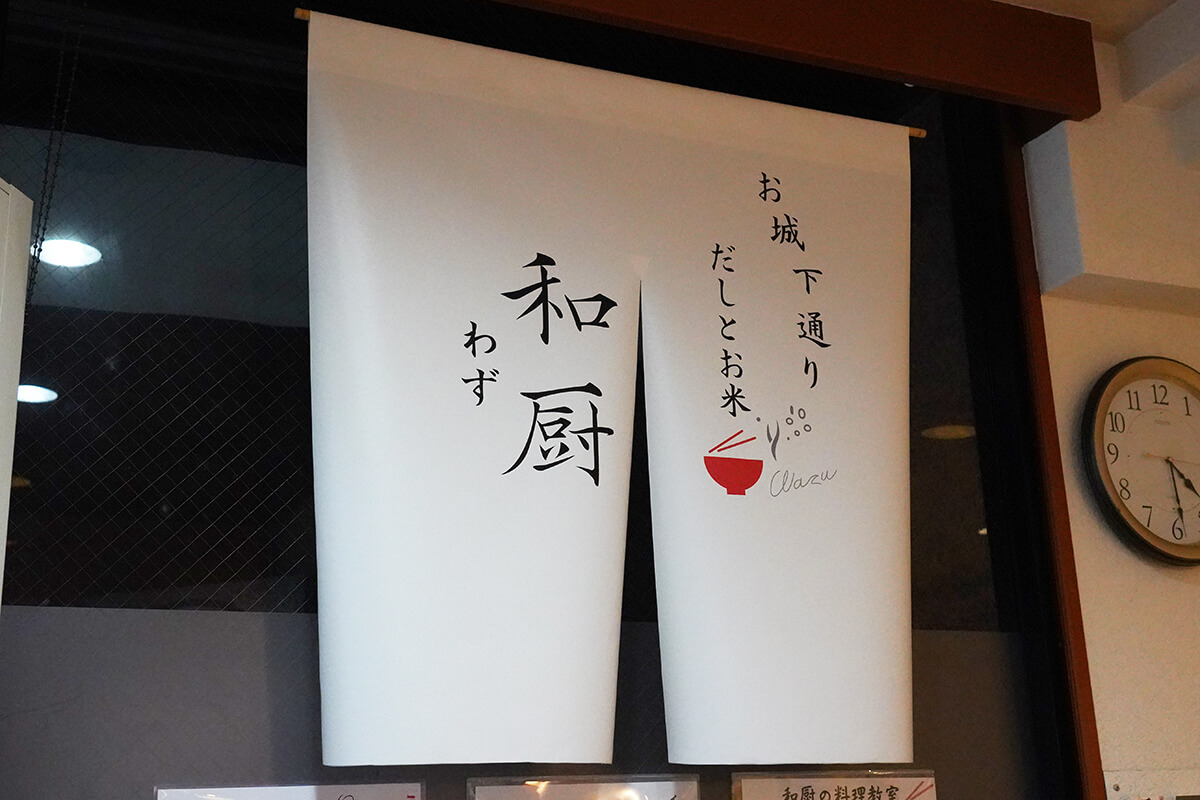 お城下通り
だしとお米
Wazu
和厨
わず
和厨の料理教室
11 12 1
10
9
8
7
6